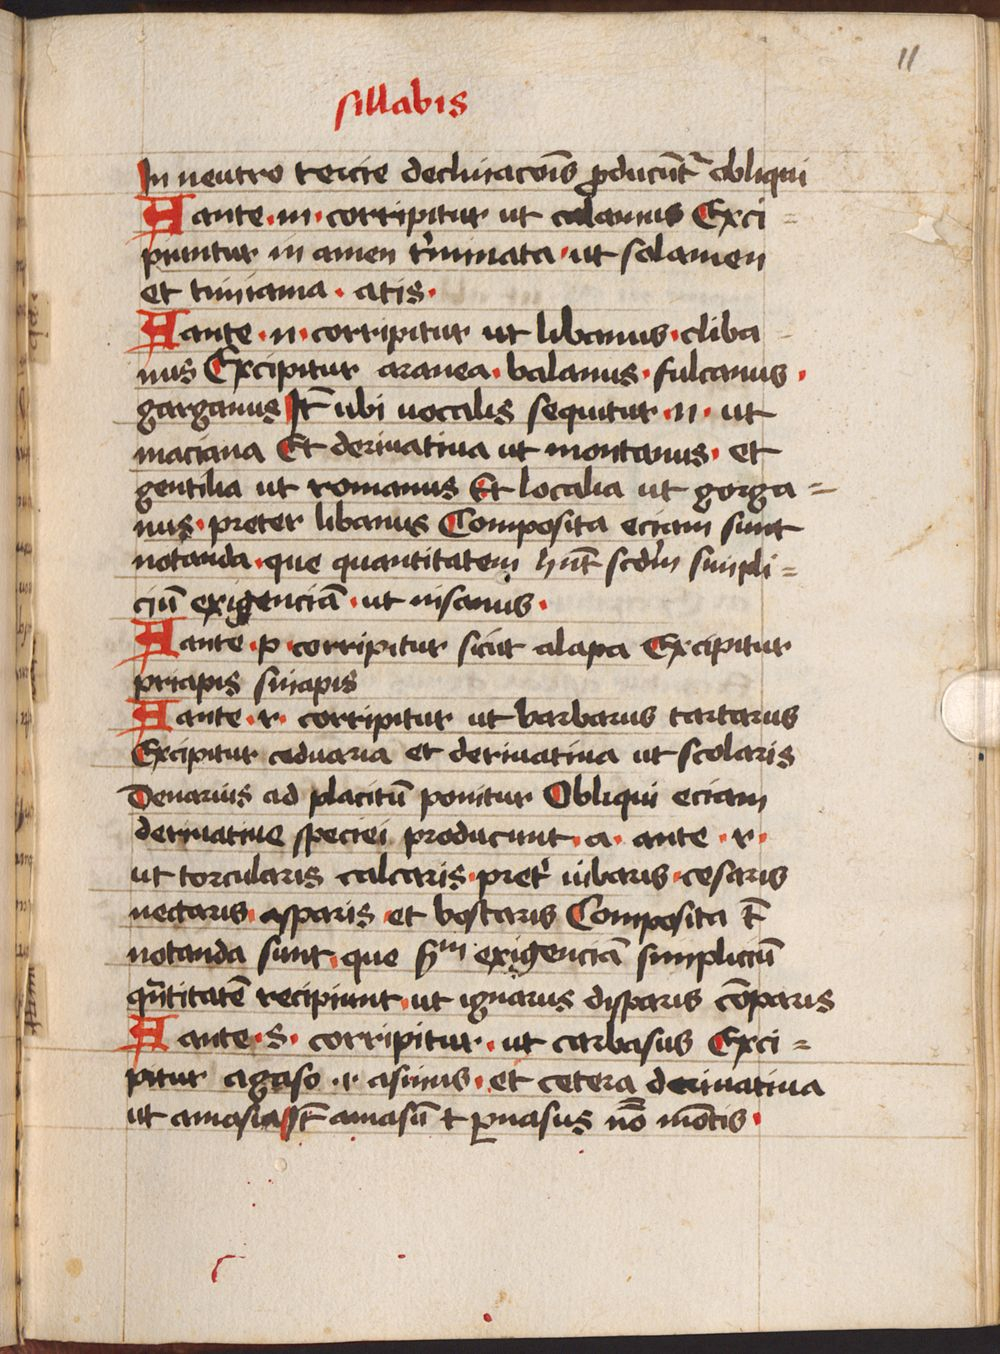 11
sillabis
In neutro tercie declinacōis ꝓducūt᷑ obliqui
A ante · m · corripitur ut calamus Exci=
piuntur in amen t᷑minata · ut solamen
et timiama · atis ·
A ante · n · corripitur ut libanus · cliba
nus Excipitur aranea · balanus · fulcanus ·
garganus It̄ ubi uocalis sequitur · n · ut
maciana Et deriuatiua ut montanus · et
gentilia ut romanus Et localia ut gorga=
nus · preter libanus Composita eciam sunt
notanda · que quantitatem hn̄t scdm̄ simpli=
ciū exigenciā · ut insanus ·
A ante · p · corripitur sicut alapa Excipitur
priapis sinapis
A ante · r · corripitur ut barbarus tartarus
Excipitur ceduaria et deriuatiua ut scolaris
Denarius ad placitū ponitur Obliqui eciam
deriuatiue speciei producunt · a · ante · r ·
ut torcularis calcaris · pret᷑ iubaris · cesaris
nectaris · asparis · et bostaris Composita t̄
notanda sunt · que s̄m exigenciā simpliciū
qn̄titatē recipiunt · ut ignarus disparis cōparis
A ante · s · corripitur · ut carbasus Exci=
pitur agaso · r asinus · et cetera deriuatiua
ut amasia It̄ amasiū t ꝑnasus nō mōtis ·